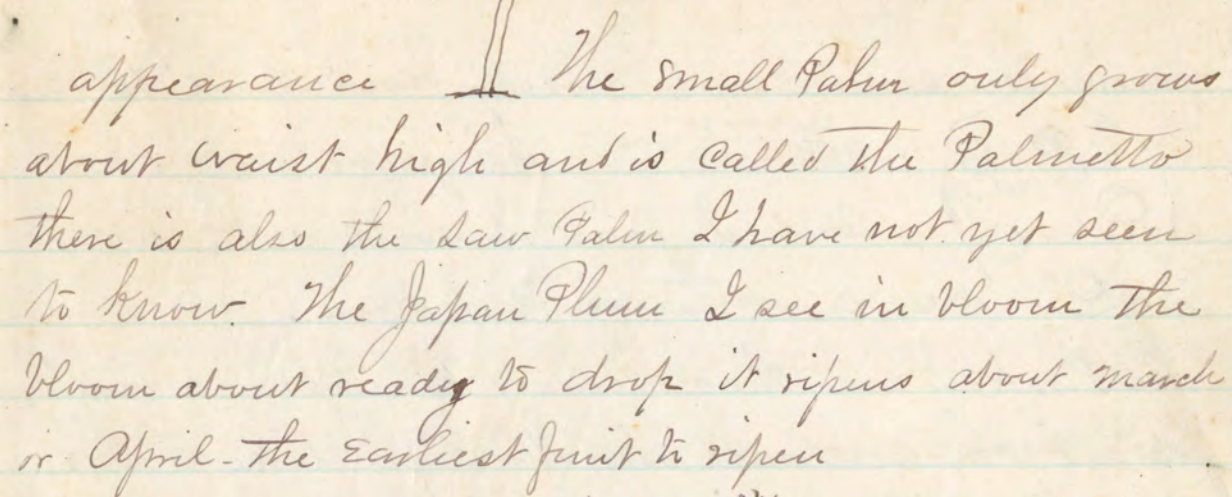 appearance The small Palm only grows
about waist high and is called the Palmetto
there is also the Saw Palm I have not yet seen
to know. The Japan Plum I see in bloom the
bloom about ready to drop it ripens about march
or April - the Earliest fruit to ripen